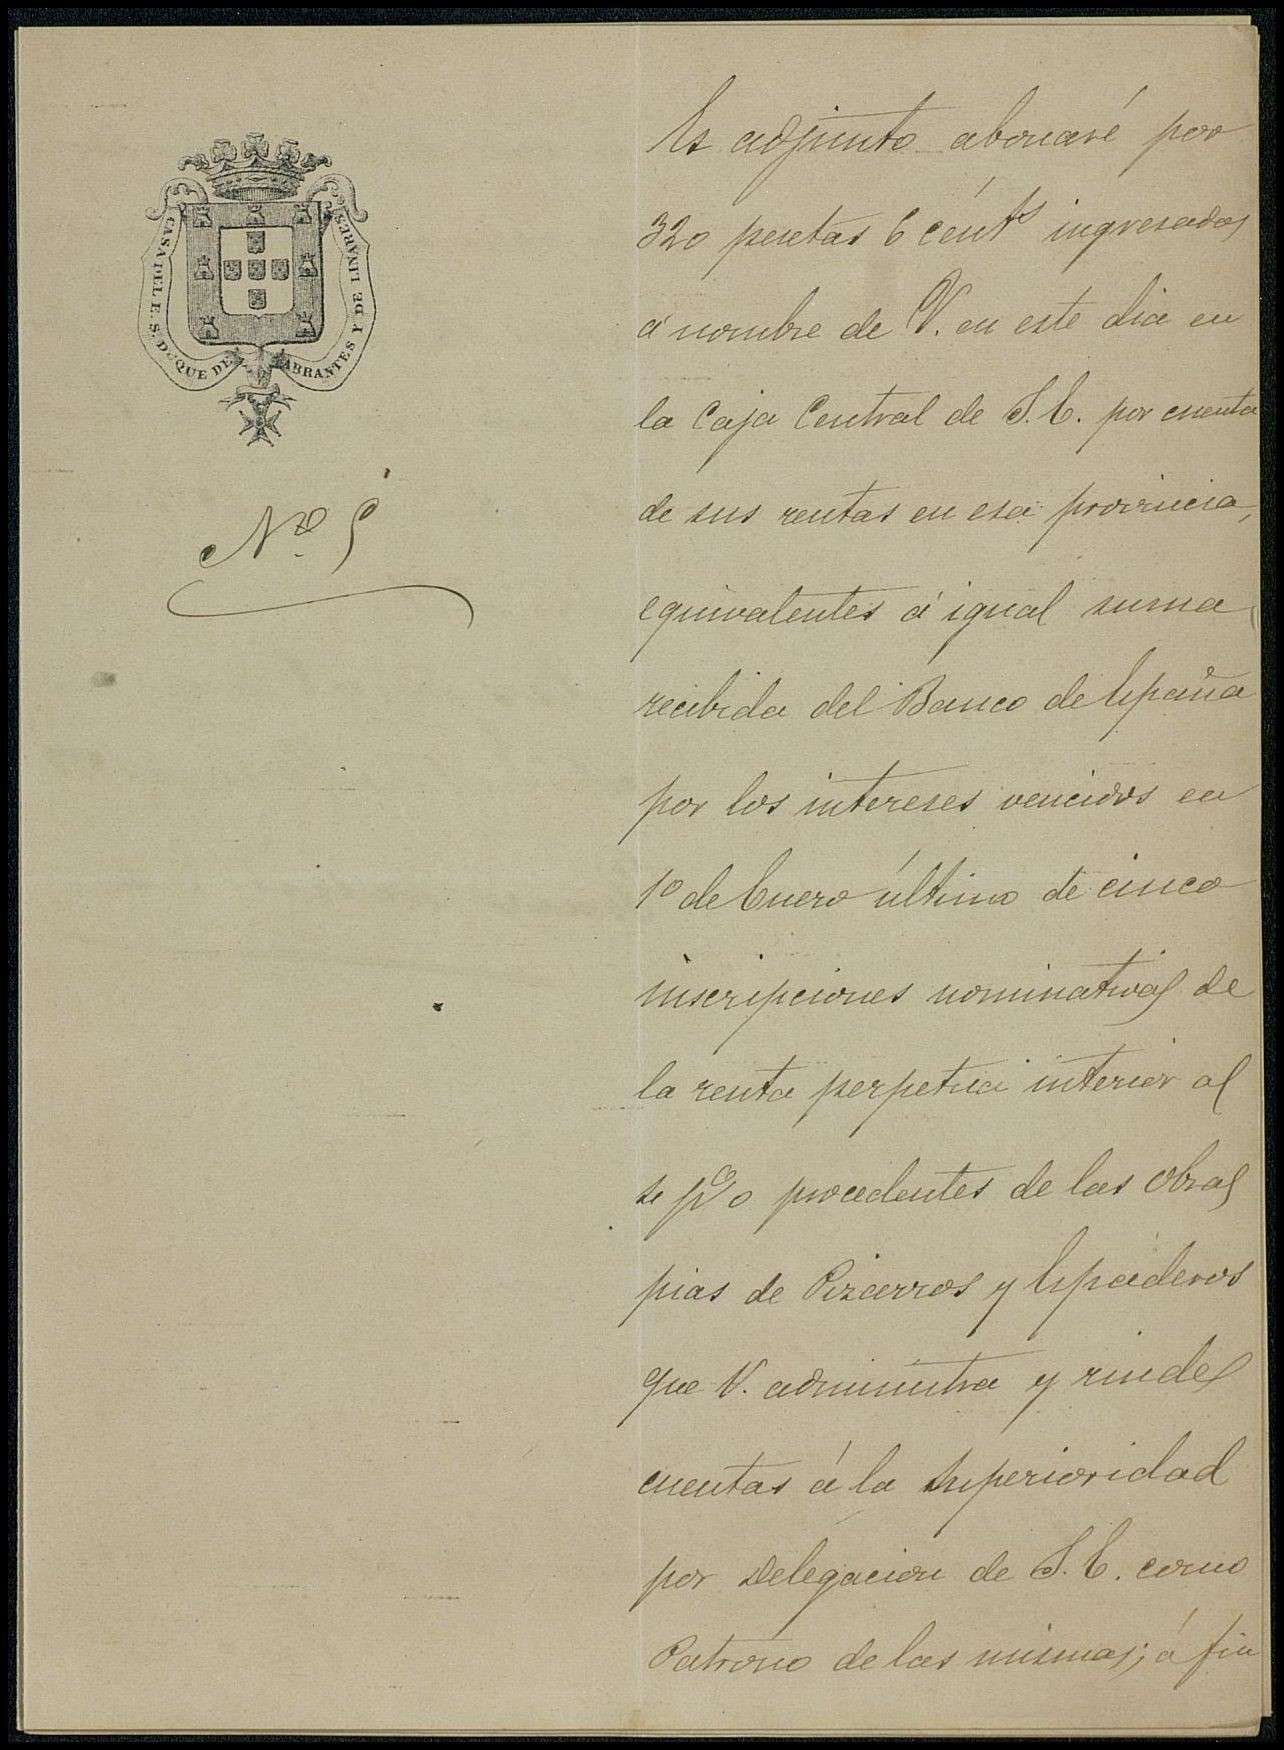 CASA DEL E. S. DUQUE DE ABRANTES Y DE LINARES
Nº 5
Es adjunto abonaré por
320 pesetas 6 cénts ingresados
á nombre de V. en este dia en
la Caja Central de S.E. por cuenta
de sus rentas en esa provincia,
equivalentes á igual suma
recibida del Banco de España
por los intereses vencidos en
1º de Enero último de cinco
inscripciones nominativas de
la renta perpetua interior al
pº o procedentes de las Obras
pias de Pizarros y Espaderos
que V. administra y rinde
cuentas á la Superioridad
por delegacion de S.E. como
Patrono de las mismas; á fin